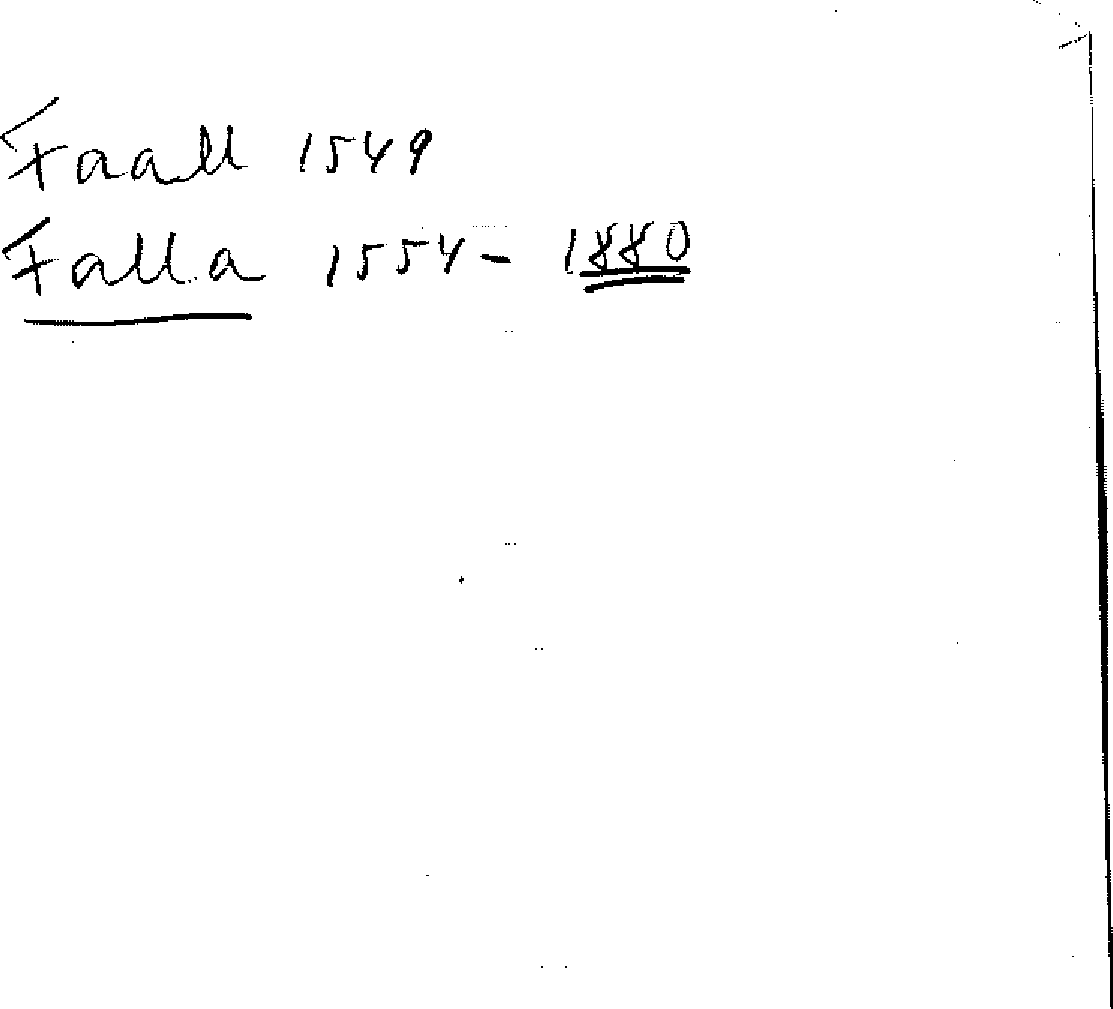 Faall 1549
Falla 1554 - 1880